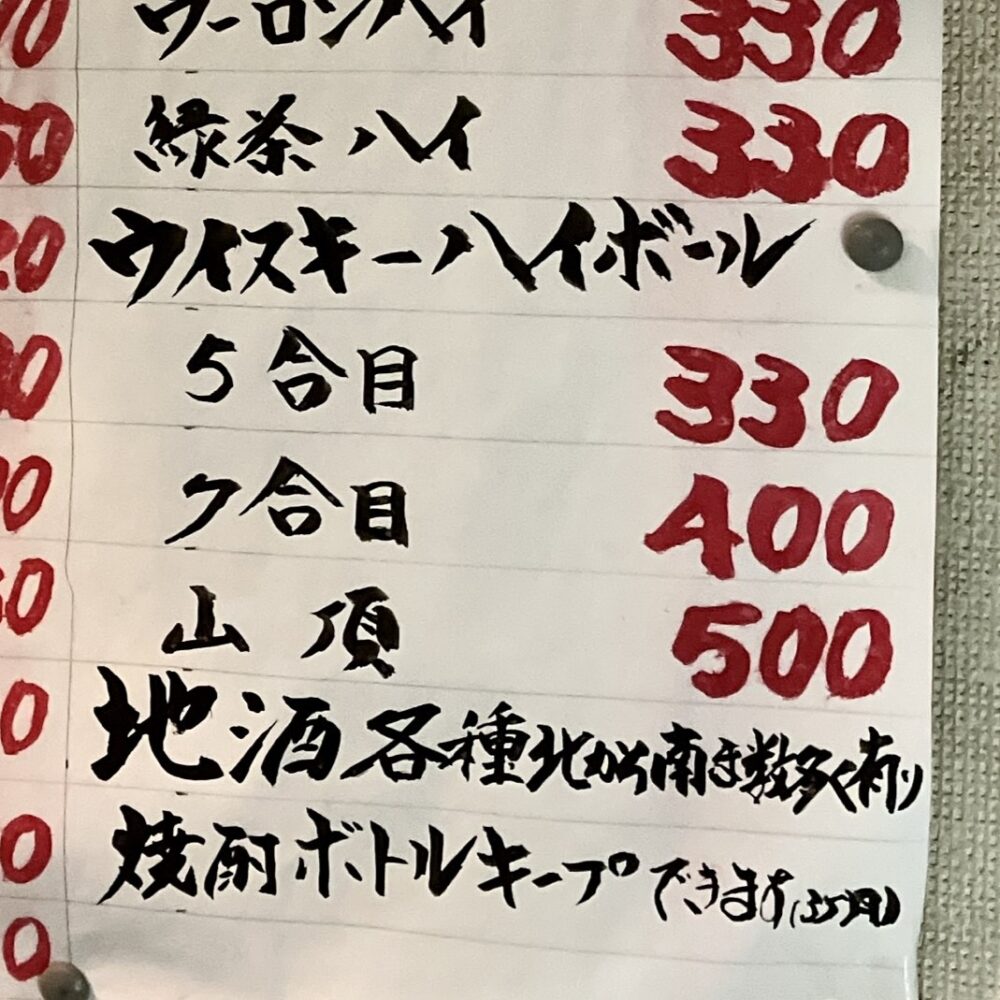 ウーロンハイ 330
緑茶ハイ 330
ウイスキーハイボール
5合目 330
7合目 400
山頂 500
地酒各種北から南まで数多く有り
焼酎ボトルキープできます